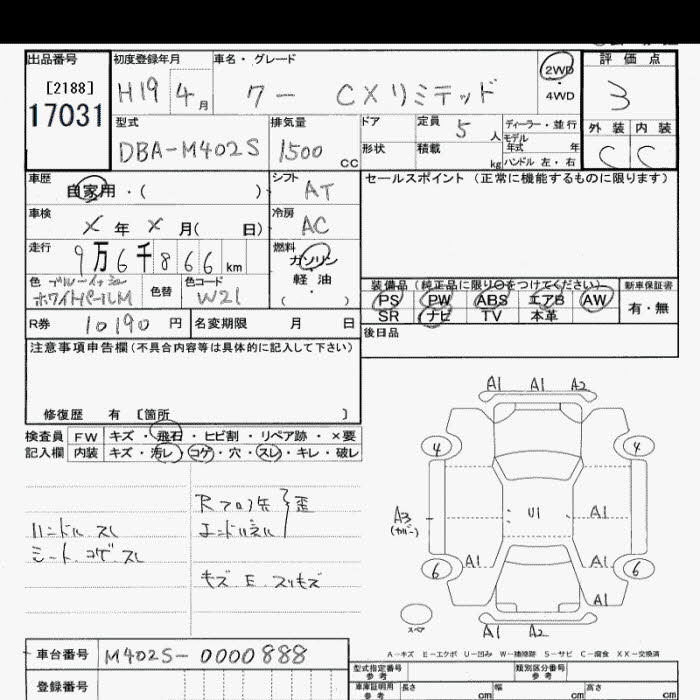 出品番号 初度登録年月 車名・グレード 2WD 評価点
[2188] H19 4月 クー CXリミテッド 4WD 3
17031
型式 排気量 ドア 定員 5人 ディーラー・並行 外装 内装
モデル年式 年
DBA-M402S 1500cc 形状 積載 kg ハンドル 左・右 C C
車歴 シフト セールスポイント(正常に機能するものに限ります)
自家用・( ) AT
車検 冷房
X年X月( 日) AC
走行 燃料
9万6千866km ガソリン
軽油
( )
色 色替 色コード 装備品(純正品に限り○をつけてください) 新車保証書
ホワイトパールM W21 PS PW ABS エアB AW 有・無
SR ナビ TV 本革
R券 10190円 名変期限 月 日 後日品
注意事項申告欄(不具合内容等は具体的に記入して下さい)
修復歴 有〔箇所 〕
検査員 FW キズ・飛石・ヒビ割・リペア跡・×要
記入欄 内装 キズ・汚レ・コゲ・穴・スレ・キレ・破レ
ハンドル スレ
シート コゲ スレ
キズ E スリキズ
A1 A1 A2
4 4
A3 U1 A1
(カバー)
6 A1 A1 6
A1
スペア A1 A2
A-キズ E-エクボ U-凹み W-補修跡 S-サビ C-腐食 XX-交換済
車台番号 M402S-0000888
型式指定番号 参考 類別区分番号 参考
登録番号 車庫証明用 参考 長さ cm 幅 cm 高さ cm